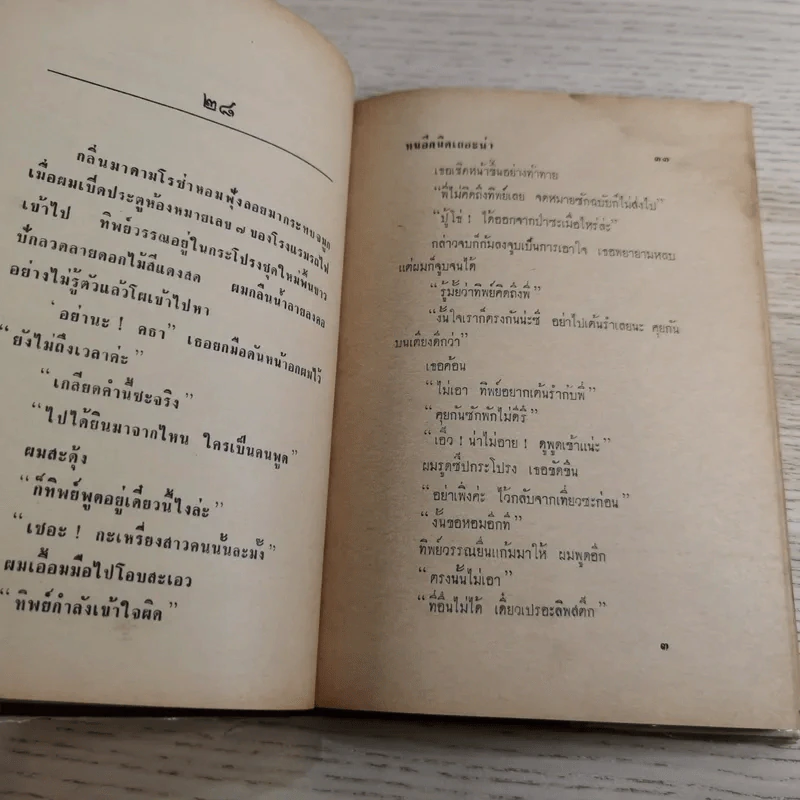 ๒๘
กลิ่นมาดามโรช่าหอมฟุ้งลอยมากระทบจมูก
เมื่อผมเปิดประตูห้องหมายเลข ๗ ของโรงแรมรถไฟ
เข้าไป ทิพย์วรรณอยู่ในกระโปรงชุดใหม่พื้นขาว
ปักลวดลายดอกไม้สีแดงสด ผมกลืนน้ำลายลงคอ
อย่างไม่รู้ตัวแล้วโผเข้าไปหา
“อย่านะ ! คธา” เธอยกมือดันหน้าอกผมไว้
“ยังไม่ถึงเวลาค่ะ”
“เกลียดคำนี้ซะจริง”
“ไปได้ยินมาจากไหน ใครเป็นคนพูด”
ผมสะดุ้ง
“ก็ทิพย์พูดอยู่เดี๋ยวนี้ไงล่ะ”
“เชอะ ! กะเหรี่ยงสาวคนนั้นละมั้ง”
ผมเอื้อมมือไปโอบสะเอว
“ทิพย์กำลังเข้าใจผิด”
๓๓
เธอเชิดหน้าขึ้นอย่างท้าทาย
“พี่ไม่คิดถึงทิพย์เลย จดหมายซักฉบับก็ไม่ส่งไป”
“ปู้โธ่ ! ได้ออกจากป่าซะเมื่อไหร่ล่ะ”
กล่าวจบก็ก้มลงจูบเป็นการเอาใจ เธอพยายามหลบ
แต่ผมก็จูบจนได้
“รู้มั้ยว่าทิพย์คิดถึงพี่”
“งั้นใจเราก็ตรงกันน่ะซี อย่าไปเต้นรำเลยนะ คุยกัน
บนเตียงดีกว่า”
เธอค้อน
“ไม่เอา ทิพย์อยากเต้นรำกับพี่”
“คุยกันซักพักไม่ดีรึ”
“เอ๊ว ! น่าไม่อาย ! ดูพูดเข้าแน่ะ”
ผมรูดซิปกระโปรง เธอขัดขืน
“อย่าเพิ่งค่ะ ไว้กลับจากเที่ยวซะก่อน”
“งั้นขอหอมอีกที”
ทิพย์วรรณยื่นแก้มมาให้ ผมพูดอีก
“ตรงนั้นไม่เอา”
“ที่อื่นไม่ได้ เดี๋ยวเปรอะลิพสติ๊ก”
๓